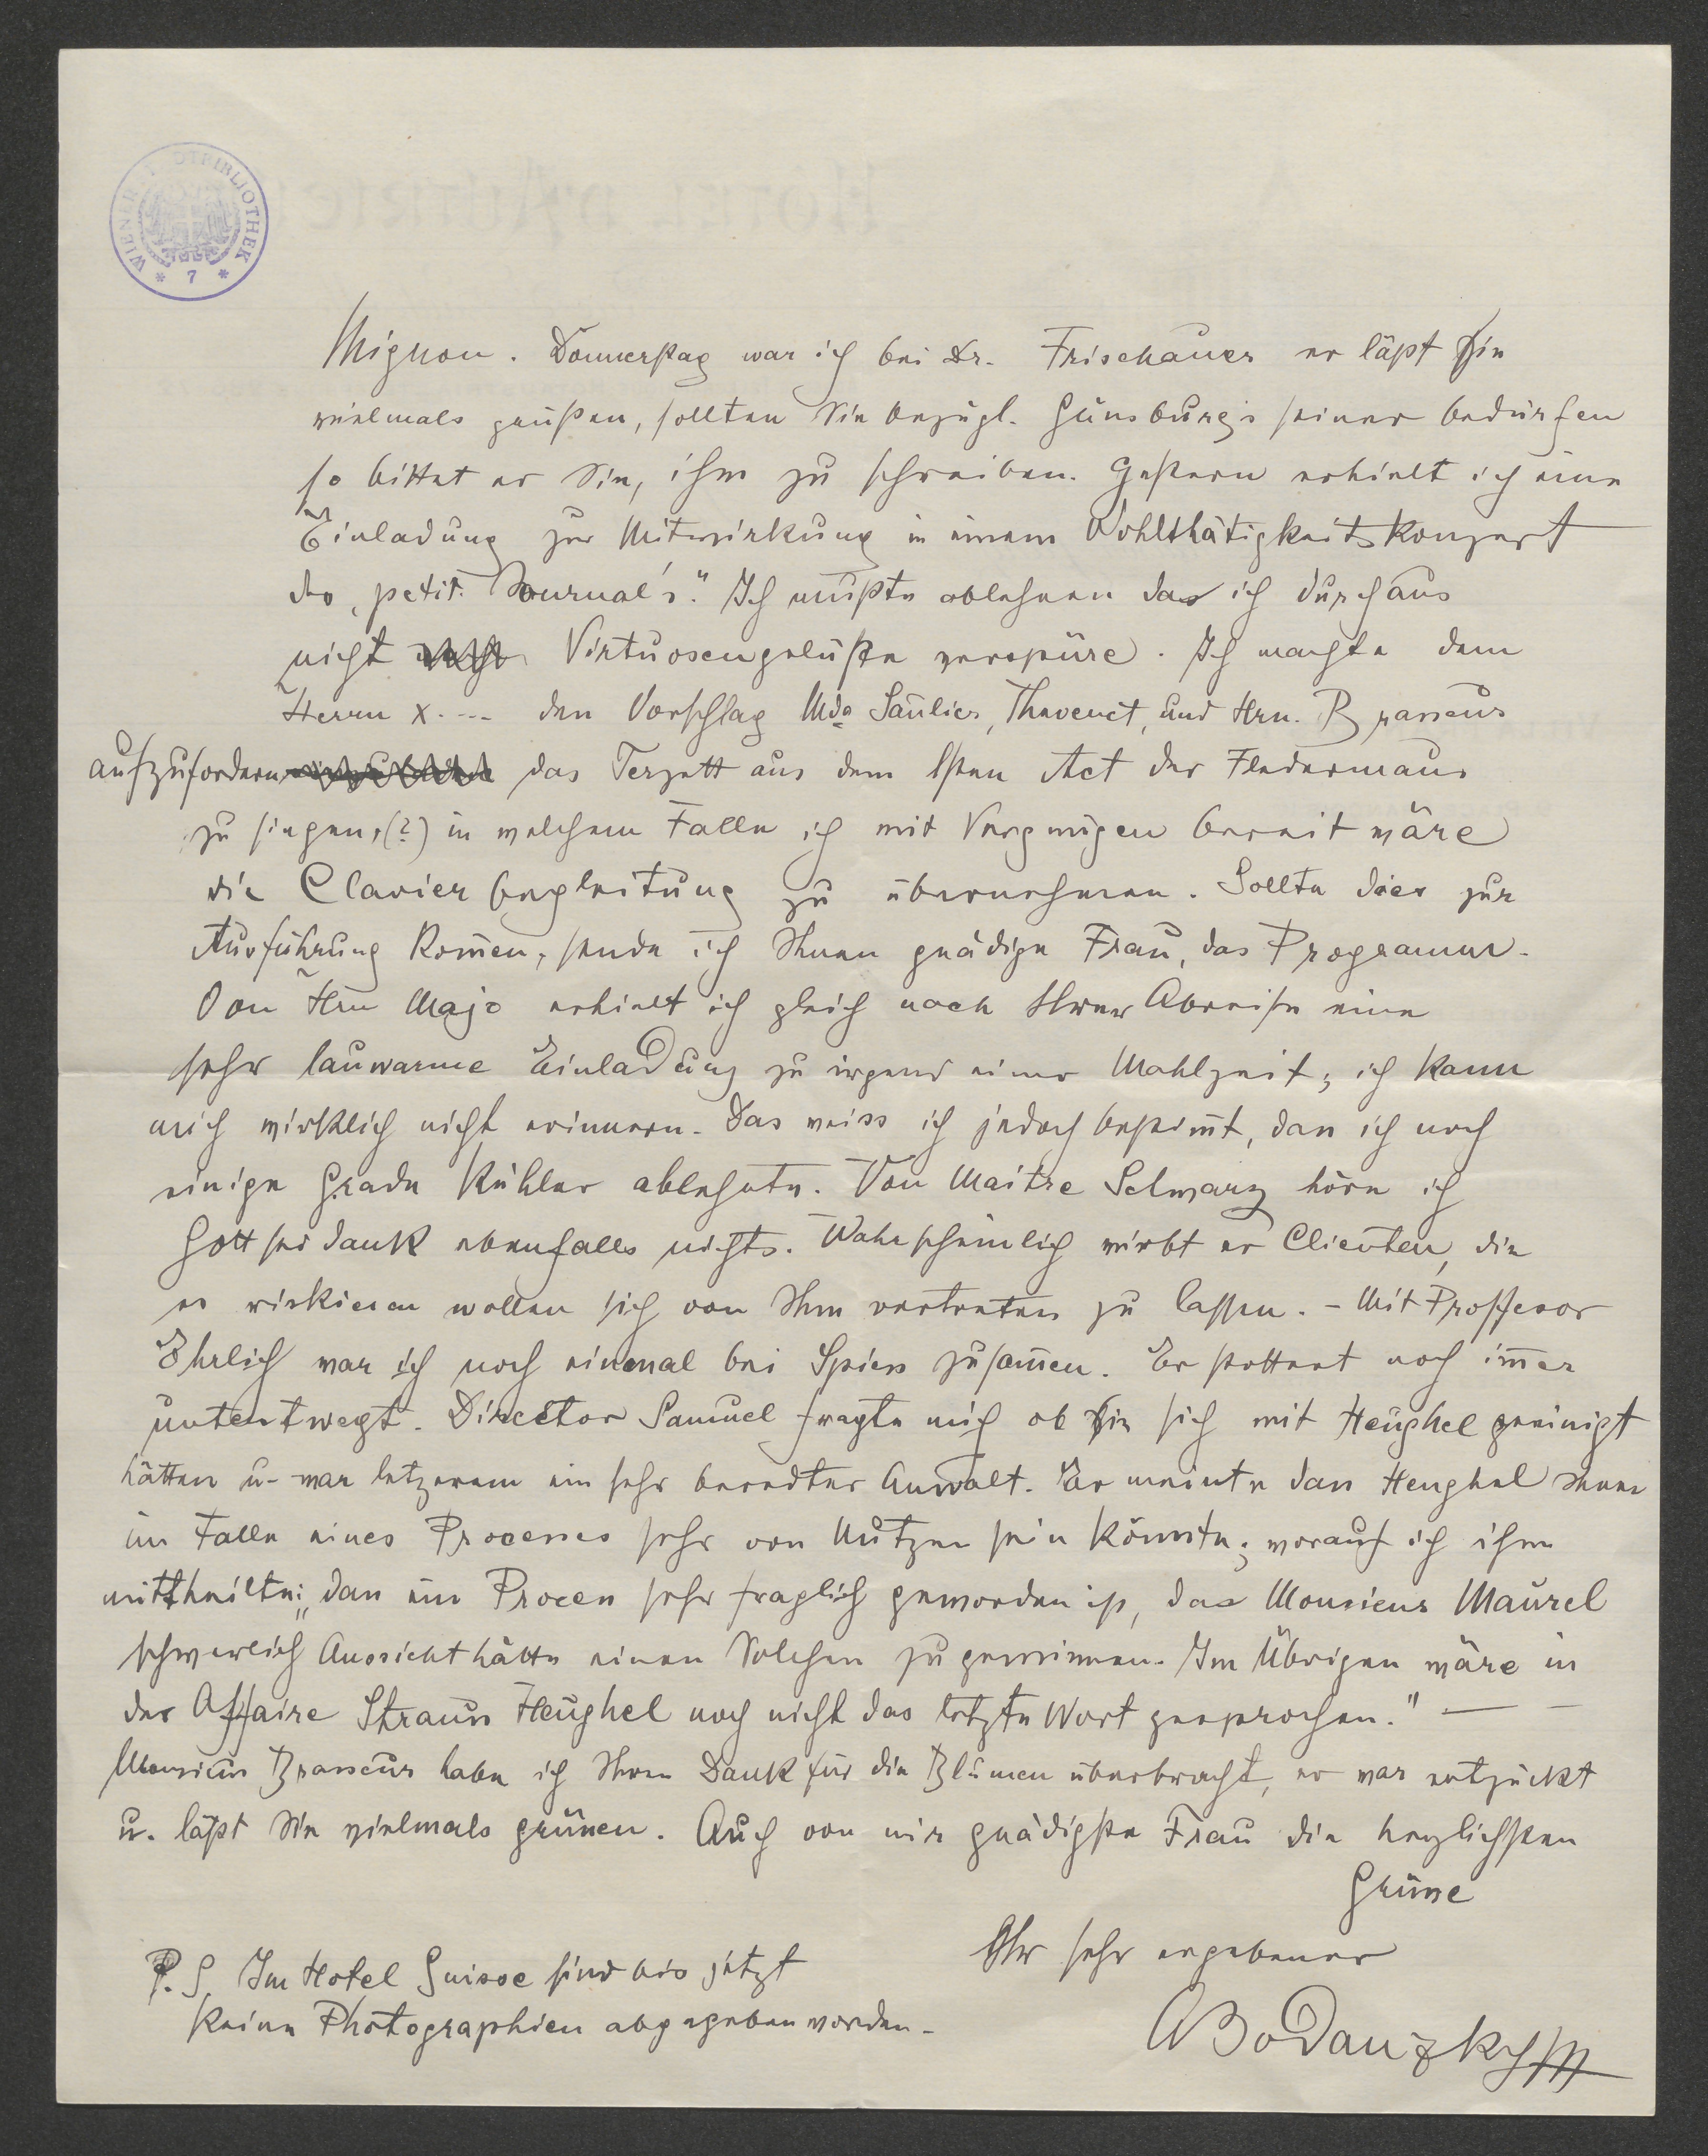 WIENER STADTBIBLIOTHEK
* 7 *
Mignon. Donnerstag war ich bei Dr. Frischauer er läßt Sie
vielmals grüßen, sollten Sie bezügl. Günsburg's seiner bedürfen
so bittet er Sie, ihm zu schreiben. Gestern erhielt ich eine
Einladung zur Mitwirkung in einem Wohlthätigkeitskonzert
des „petit Journal's." Ich mußte ablehnen da ich durchaus
nicht Virtuosengelüste verspüre. Ich machte dem
Herrn X.--- den Vorschlag Mde Saulier, Thevenet, und Hrn. Brasseur
aufzufordern das Terzett aus dem Isten Act der Fledermaus
zu singen, (?) in welchem Falle ich mit Vergnügen bereit wäre
die Clavierbegleitung zu übernehmen. Sollte dies zur
Ausführung kom̄en, sende ich Ihnen gnädige Frau, das Programm.
Von Hrn Majo erhielt ich gleich nach Ihrer Abreise eine
sehr lauwarme Einladung zu irgend einer Mahlzeit; ich kann
mich wirklich nicht erinnern. Das weiss ich jedoch bestim̄t, dass ich noch
einige Grade kühler ablehnte. Von Maitre Schwarz höre ich
Gott sei dank ebenfalls nichts. Wahrscheinlich wirbt er Clienten, die
es riskieren wollen sich von Ihm vertreten zu lassen. – Mit Proffesor
Ehrlich war ich noch einmal bei Spiess zusam̄en. Er stottert noch im̄er
unentwegt. Director Samuel fragte mich ob Sie sich mit Heughel geeinigt
hätten u. war letzerem ein sehr beredter Anwalt. Er meinte dass Heughel Ihnen
im Falle eines Processes sehr von Nutzen sein könnte; worauf ich ihm
mittheilte: „dass ein Process sehr fraglich geworden ist, da Monsieur Maurel
schwerlich Aussicht hätte einen Solchen zu gewinnen. Im Übrigen wäre in
der Affaire Strauss Heughel noch nicht das letzte Wort gesprochen." — —
Monsieur Brasseur habe ich Ihren Dank für die Blumen überbracht, er war entzückt
u. läßt Sie vielmals grüssen. Auch von mir gnädigste Frau die herzlichsten
Grüsse
Ihr sehr ergebener
ABodanzky
P.S. Im Hotel Suisse sind bis jetzt
keine Photographien abgegeben worden.